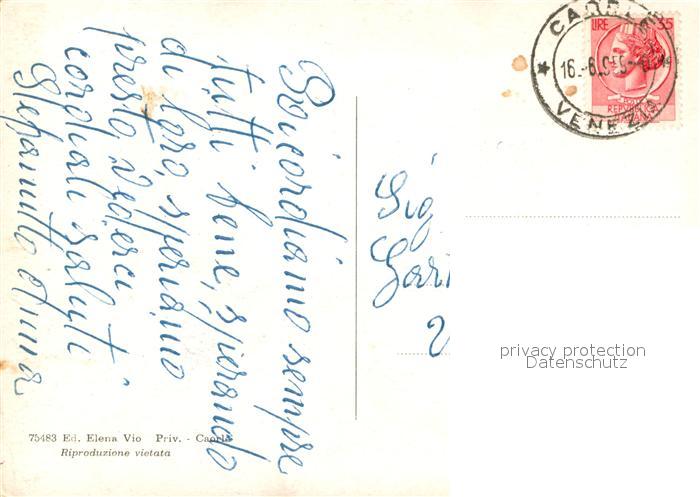 Ricordiamo sempre
tutti bene, sperando
di loro, speriamo
presto vederci
cordiali saluti
Stefanutto Anna
Sig
Gari
CAORLE
16.-6.959-
VENEZIA
LIRE 35
REPUBBLICA
ITALIANA
privacy protection
Datenschutz
75483 Ed. Elena Vio Priv. - Caorle
Riproduzione vietata